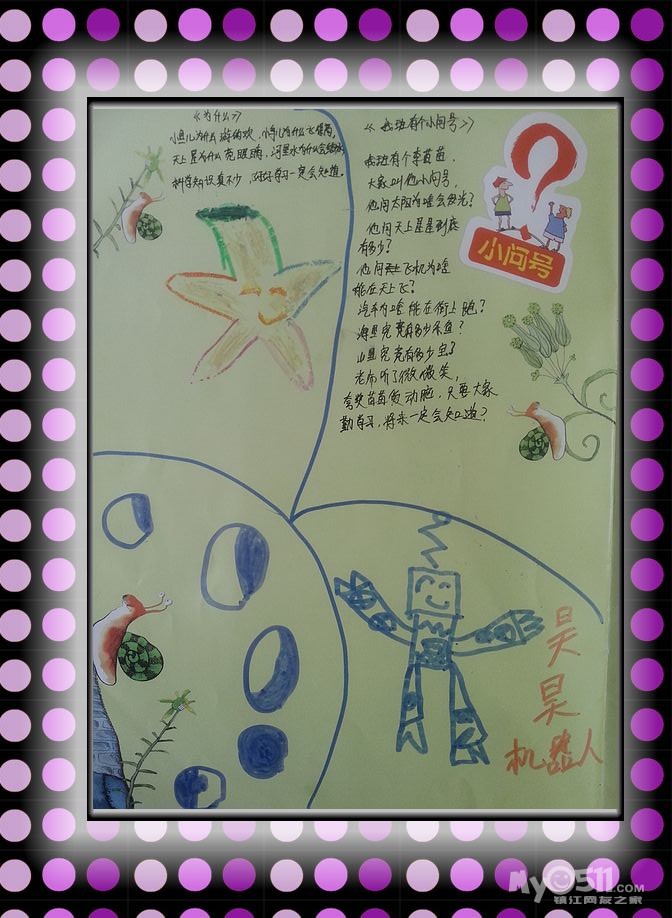 《为什么》
小鱼儿为什么游的欢,小鸟儿为什么飞得高,
天上星为什么亮晶晶,河里水为什么会结冰,
科学知识真不少,好好学习一定会知道。
《我班有个小问号》
我班有个李苗苗,
大家叫他小问号,
他问太阳为啥会发光?
他问天上星星到底
有多少?
他问飞机为啥
能在天上飞?
汽车为啥能在街上跑?
海里究竟有多少条鱼?
山里究竟有多少宝?
老师听了微微笑,
夸奖苗苗爱动脑,只要大家
勤学习,将来一定会知道?
小问号
昊
昊
机器人
My0511.COM
镇江网友之家